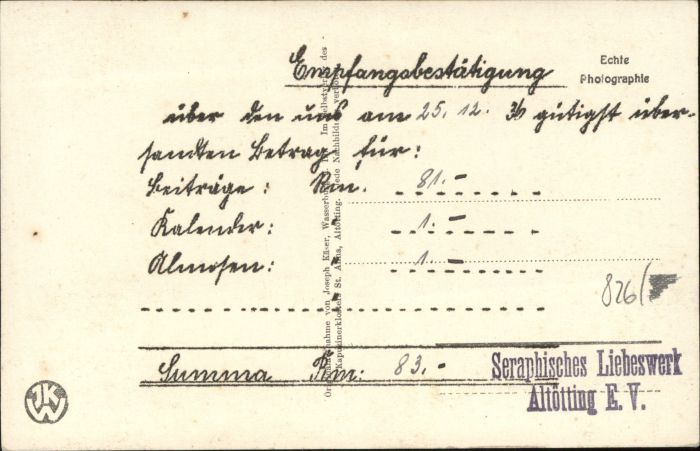 Empfangsbestätigung
Echte
Photographie
über den uns am 25. 12. gütigst über-
sandten Betrag für:
Beiträge: Rm. 81.-
Kalender: 1.-
Almosen: 1.-
826/
Summa Rm: 83.-
Seraphisches Liebeswerk
Altötting E. V.
JKW
Originalaufnahme von Joseph Käser, Wasserburg Im Selbstverlag des
Kapuzinerklosters St. Anna, Altötting. Jede Nachbildung verboten